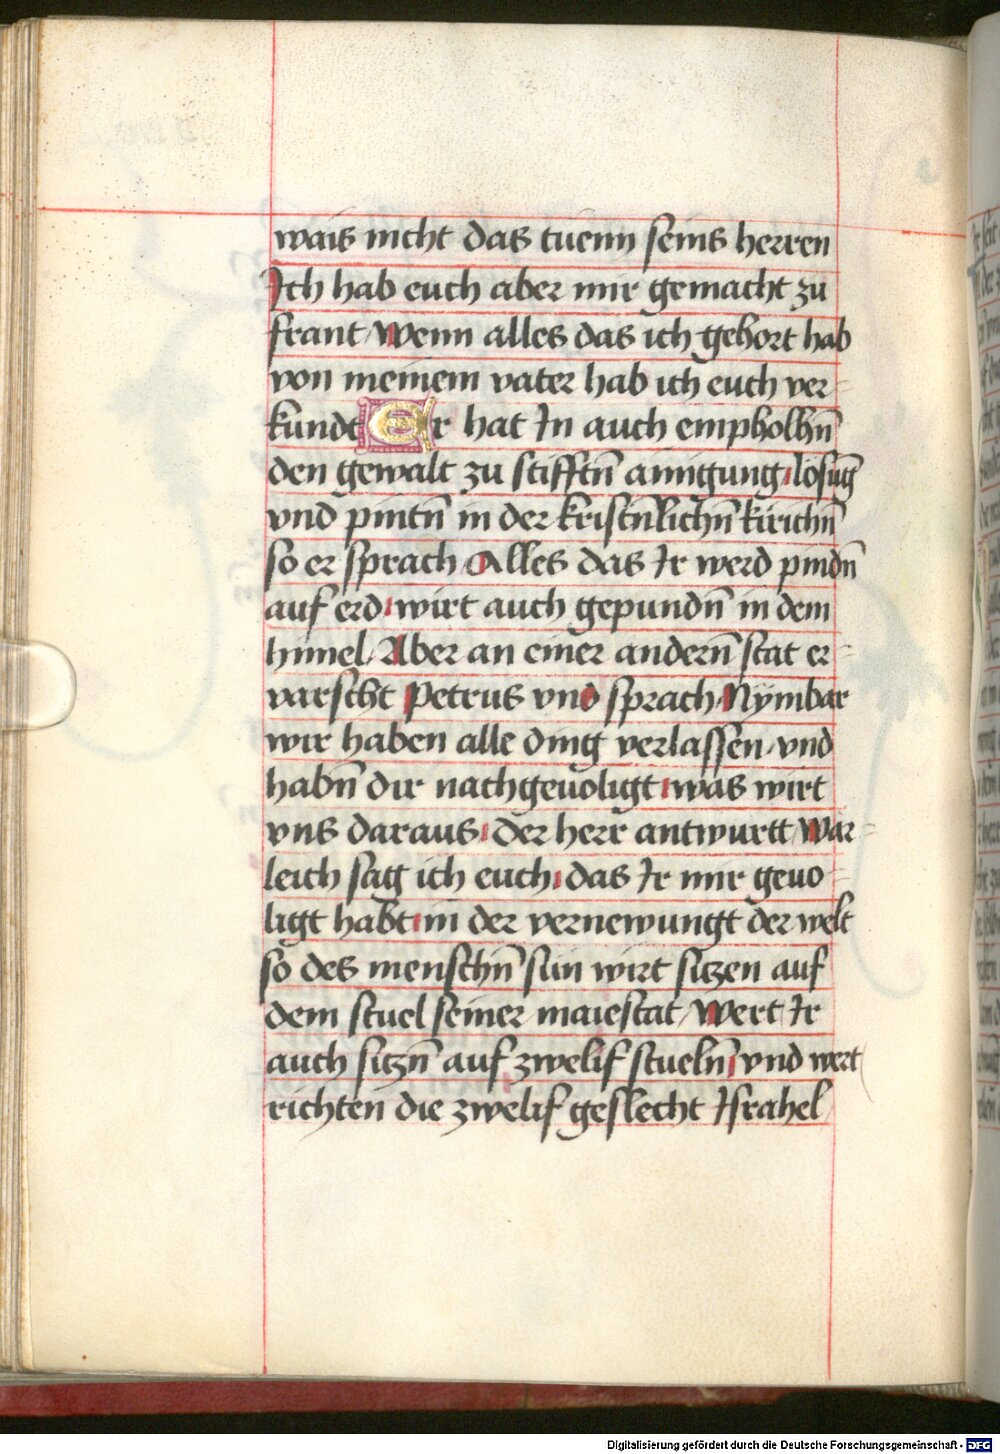 wais nicht das tuenn seins herren
Ich hab euch aber mir gemacht zu
frant / Wenn alles das ich gehort hab
von meinem vater hab ich euch ver=
kundt Er hat In auch empholhn̄
den gewalt zu stifftn̄ ainigung / losūg
vnd pintn̄ in der kristn̄lichn̄ kirichn̄
so er sprach / Alles das Ir werd pindn̄
auf erd / wirt auch gepundn̄ in dem
himel / Aber an einer andern̄ stat er=
varscht Petrus vnd sprach / Nÿmbar
wir haben alle ding verlassen / vnd
habn̄ dir nachgeuoligt / was wirt
vns daraus / der herr antwurtt / War=
leich sag ich euch / das Ir mir geuo=
ligt habt / in der vernewungt der welt
so des menschn̄ sun wirt sitzen auf
dem stuel seiner maiestat / Wert Ir
auch sitzn̄ auf zwelif stueln̄ / vnd wert
richten die zwelif geslecht Israhel
Digitalisierung gefördert durch die Deutsche Forschungsgemeinschaft - DFG